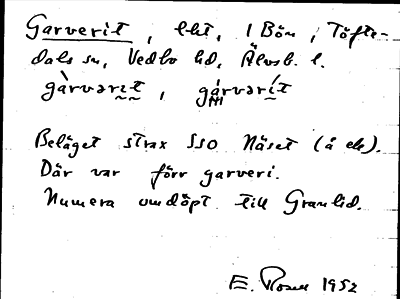 Garverit, lht, i Bön, Töfte-
dals sn, Vedbo hd, Älvsb. l.
gàrvərit, gárvərít
Beläget strax SSO Näset (å ek).
Där var förr garveri.
Numera omdöpt till Granlid.
E. Rosell 1952